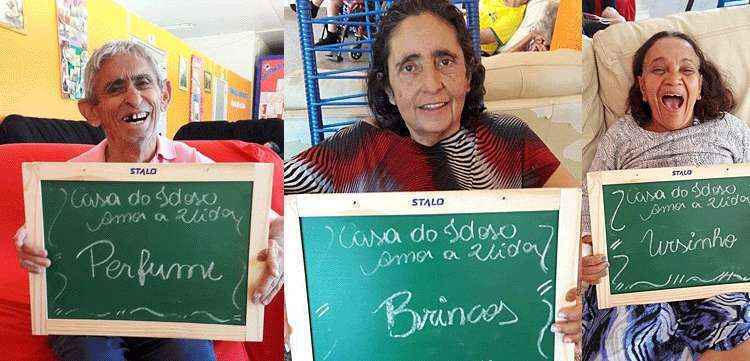 STALO
Casa do Idoso
amor a Vida
Perfume
STALO
Casa do Idoso
amor a Vida
Brincos
STALO
Casa do Idoso
amor a Vida
Ursinho